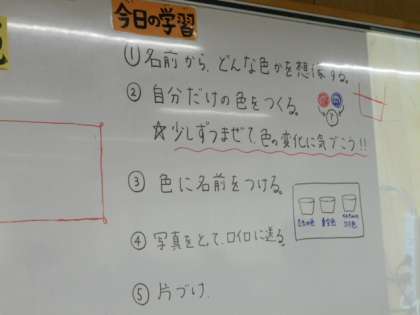 今日の学習
① 名前から、どんな色かを想像する。
② 自分だけの色をつくる。
☆少しずつまぜて、色の変化に気づこう!!
③ 色に名前をつける。
④ 写真をとって、ロイロに送る。
⑤ 片づけ.